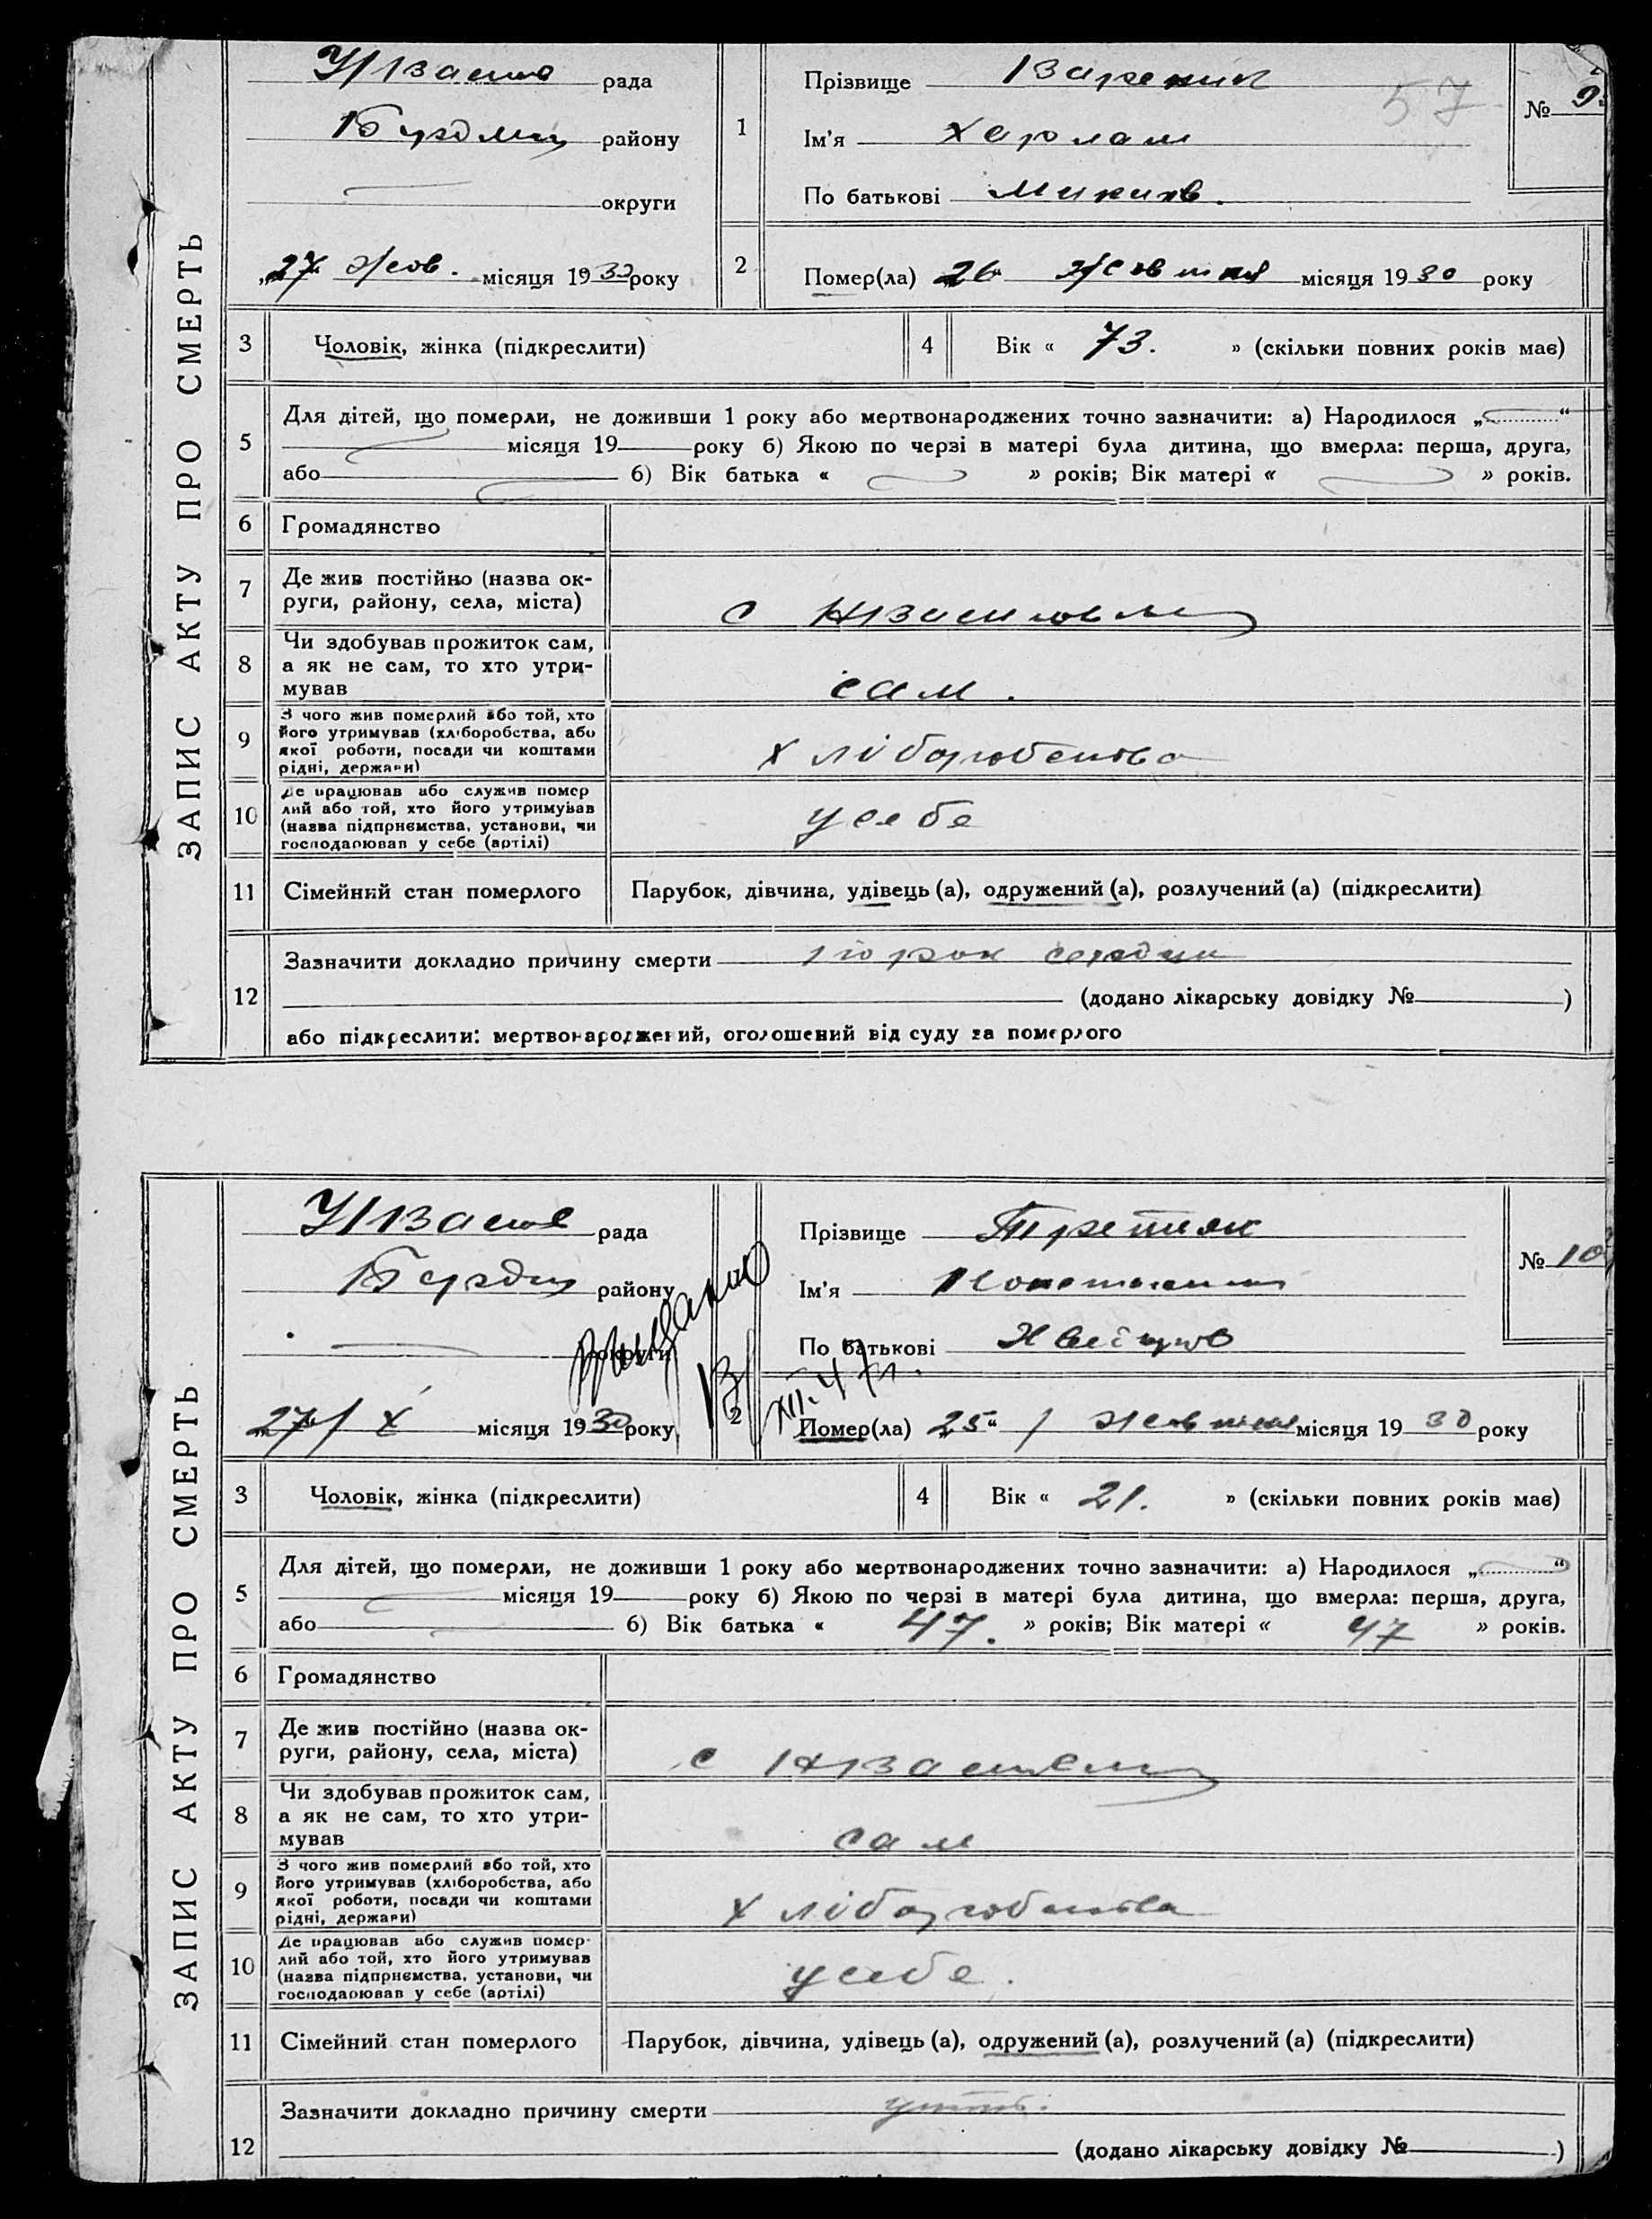 рада
району
округи
ЗАПИС АКТУ ПРО СМЕРТЬ
1
Прізвище Вареник
57
Ім'я Харлам
По батькові
№ 9
„27" Жов. місяця 1930 року
2
Помер(ла) 26 Жовтня місяця 1930 року
3 Чоловік, жінка (підкреслити)
4 Вік « 73. » (скільки повних років має)
5 Для дітей, що померли, не доживши 1 року або мертвонароджених точно зазначити: а) Народилося „ "
місяця 19 року б) Якою по черзі в матері була дитина, що вмерла: перша, друга,
або б) Вік батька « » років; Вік матері « » років.
6 Громадянство
7 Де жив постійно (назва ок-
руги, району, села, міста)
с
8 Чи здобував прожиток сам,
а як не сам, то хто утри-
мував
сам.
9 З чого жив померлий або той, хто
його утримував (хліборобства, або
якої роботи, посади чи коштами
рідні, держави)
хліборобства
10 Де працював або служив помер
лий або той, хто його утримував
(назва підприємства, установи, чи
господарював у себе (артілі)
у себе
11 Сімейний стан померлого Парубок, дівчина, удівець (а), одружений (а), розлучений (а) (підкреслити)
12 Зазначити докладно причину смерти порок сердця
(додано лікарську довідку № )
або підкреслити: мертвонароджений, оголошений від суду за померлого
рада
району
округи
ЗАПИС АКТУ ПРО СМЕРТЬ
Прізвище Третяк
Ім'я Констянтин
По батькові
№ 10
XII.47г.
27/X місяця 1930 року
2
Помер(ла) „25" / Жовтня місяця 1930 року
3 Чоловік, жінка (підкреслити)
4 Вік « 21. » (скільки повних років має)
5 Для дітей, що померли, не доживши 1 року або мертвонароджених точно зазначити: а) Народилося „ "
місяця 19 року б) Якою по черзі в матері була дитина, що вмерла: перша, друга,
або б) Вік батька « 47. » років; Вік матері « 47 » років.
6 Громадянство
7 Де жив постійно (назва ок-
руги, району, села, міста)
с
8 Чи здобував прожиток сам,
а як не сам, то хто утри-
мував
сам
9 З чого жив померлий або той, хто
його утримував (хліборобства, або
якої роботи, посади чи коштами
рідні, держави)
хліборобства
10 Де працював або служив помер-
лий або той, хто його утримував
(назва підприємства, установи, чи
господарював у себе (артілі)
у себе.
11 Сімейний стан померлого Парубок, дівчина, удівець (а), одружений (а), розлучений (а) (підкреслити)
12 Зазначити докладно причину смерти
(додано лікарську довідку № )